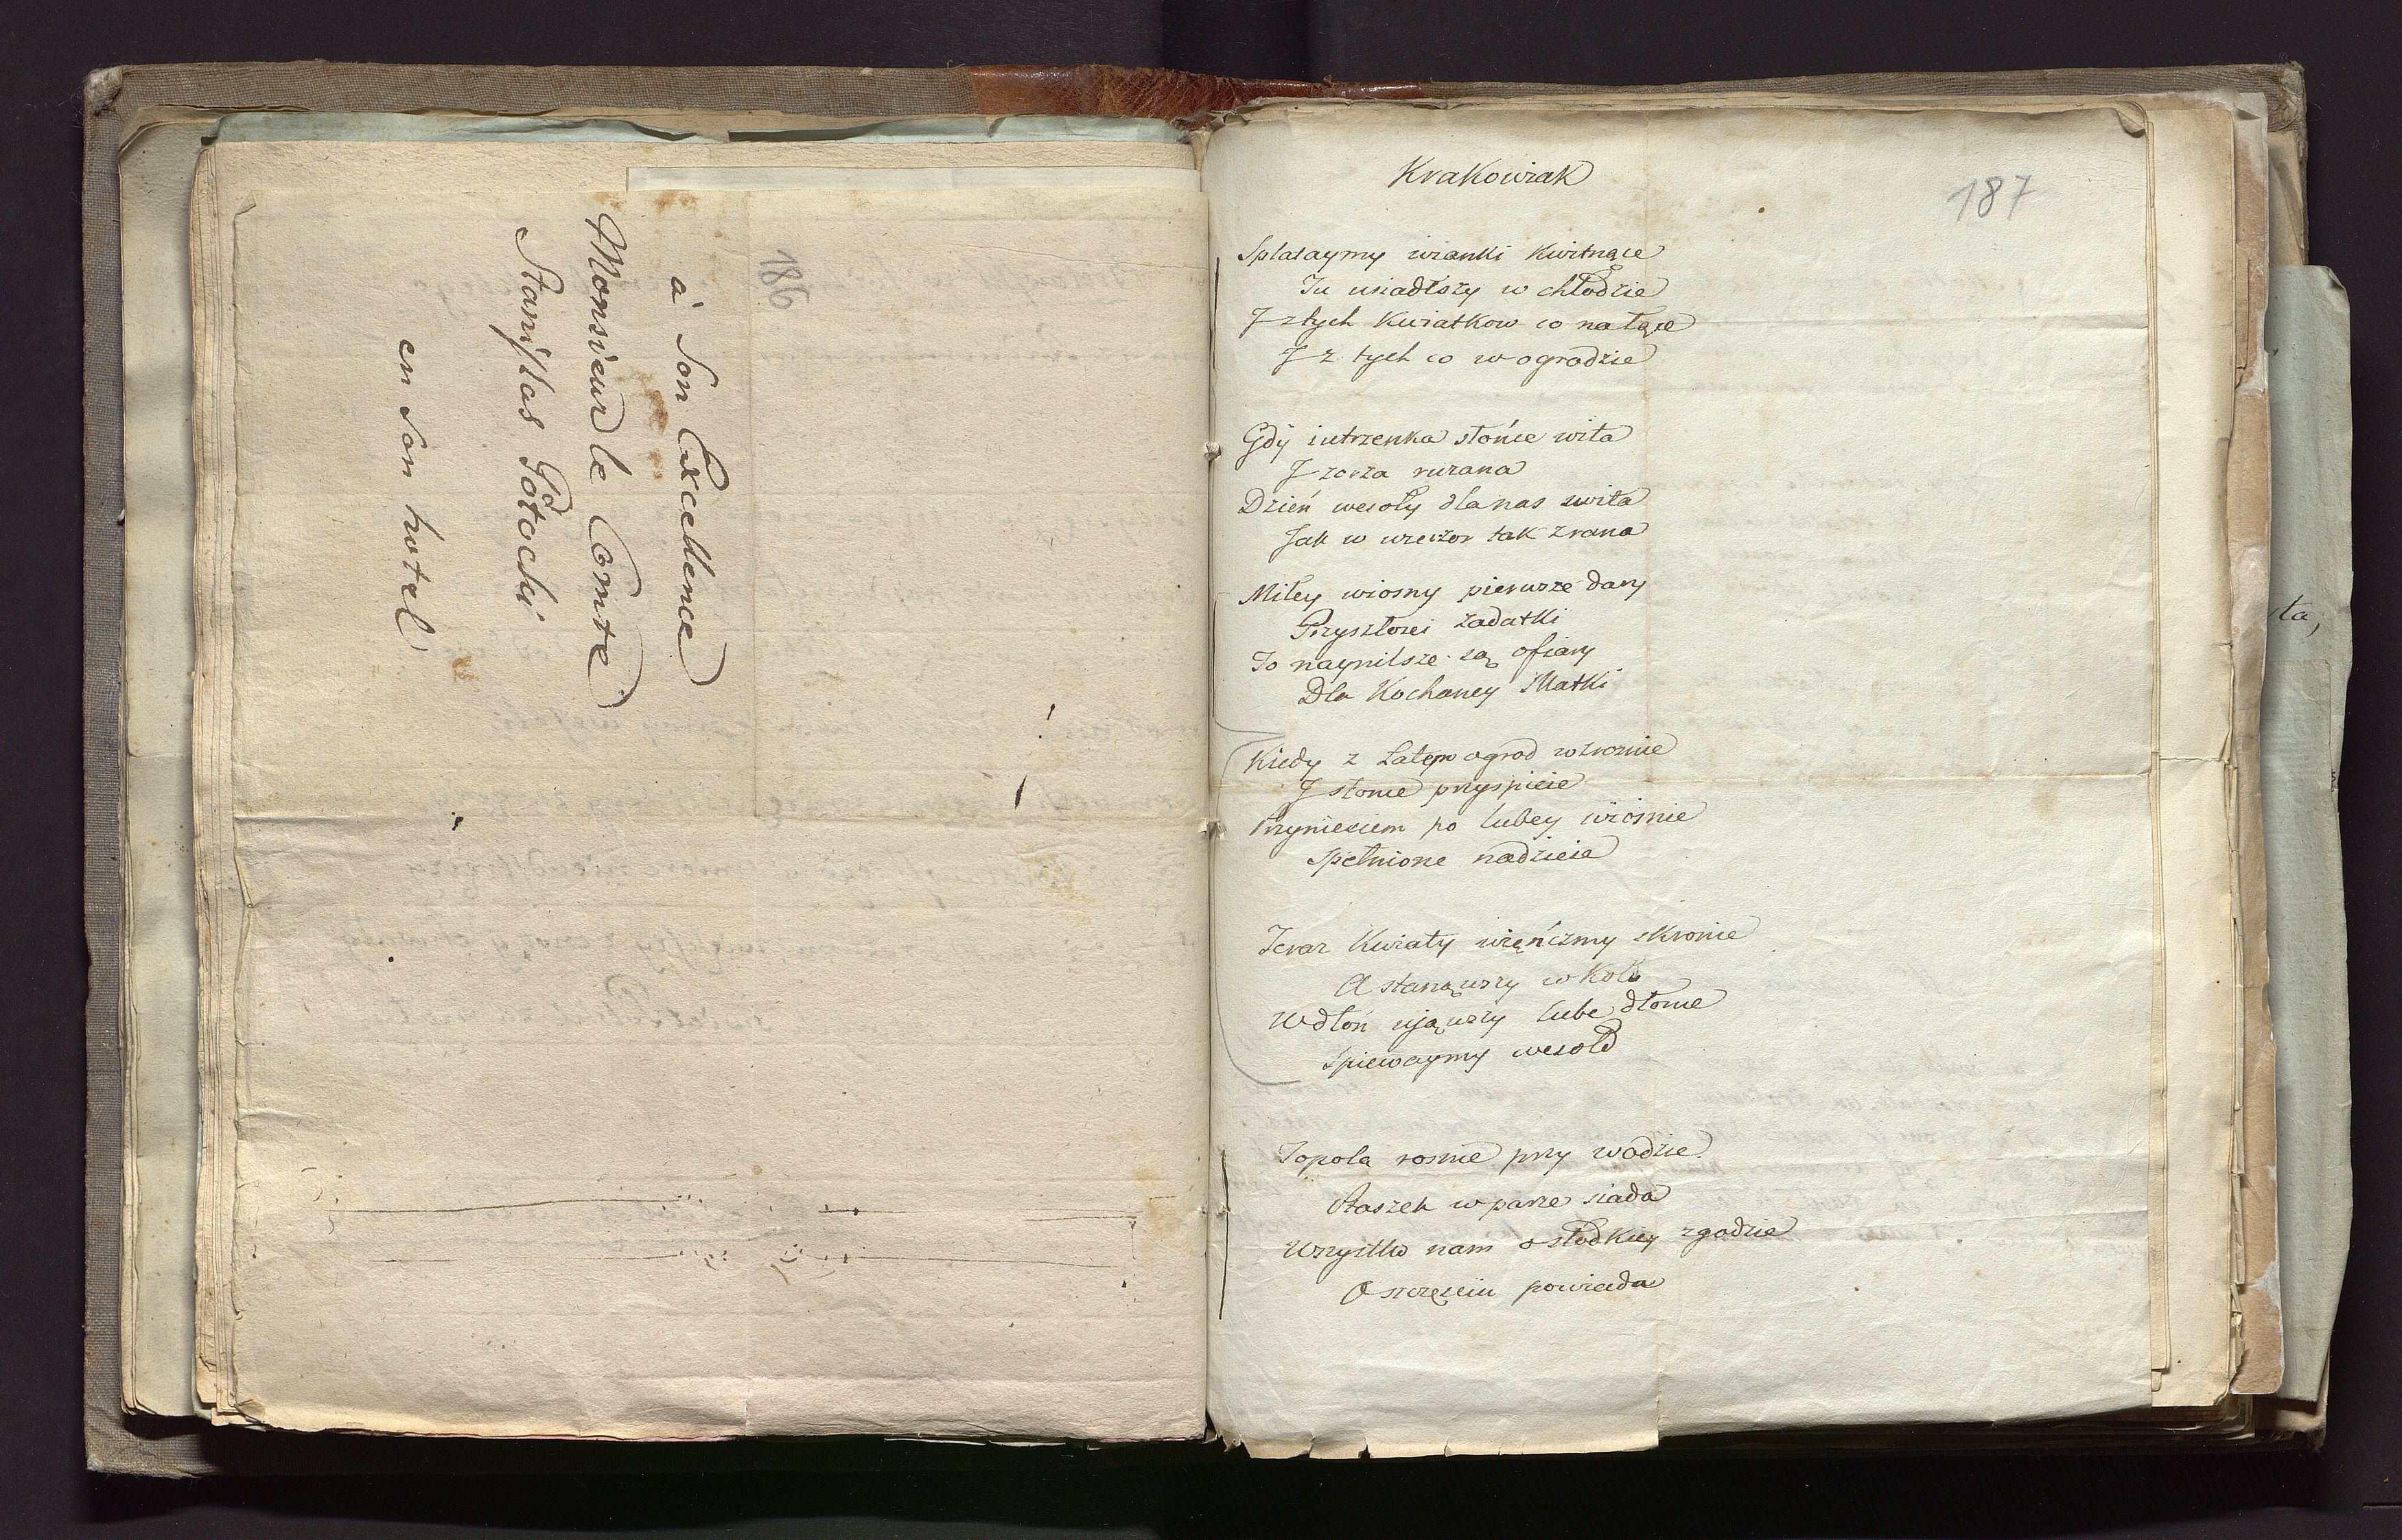 186
à Son Excellence
Monsieur le Comte
Stanislas Potocki
en son hôtel
187
Krakowiak
Splataymy wianki kwitnące
Tu usiadłszy w chłodzie
I z tych kwiatkow co na łące
I z tych co w ogrodzie
Gdy iutrzenka słońce wita
I zorza rużana
Dzień wesoły dla nas swita
Jak w wieczor tak z rana
Miley wiosny pierwsze dary
Przyszłosci zadatki
To naymilsze są ofiary
Dla Kochaney Matki
Kiedy z latem ogrod wzrosnie
I słonce przyspieie
Przyniesiem po lubey wiosnie
Spełnione nadzieie
Teraz kwiaty więńczmy skronie
A stanąwszy w koło
W dłoń ująwszy lube dłonie
Spiewaymy wesoło
Topola rosnie przy wodzie
Ptaszek w parze siada
Wszystko nam o słodkiey zgodzie
O szczęsciu powiada
ta,